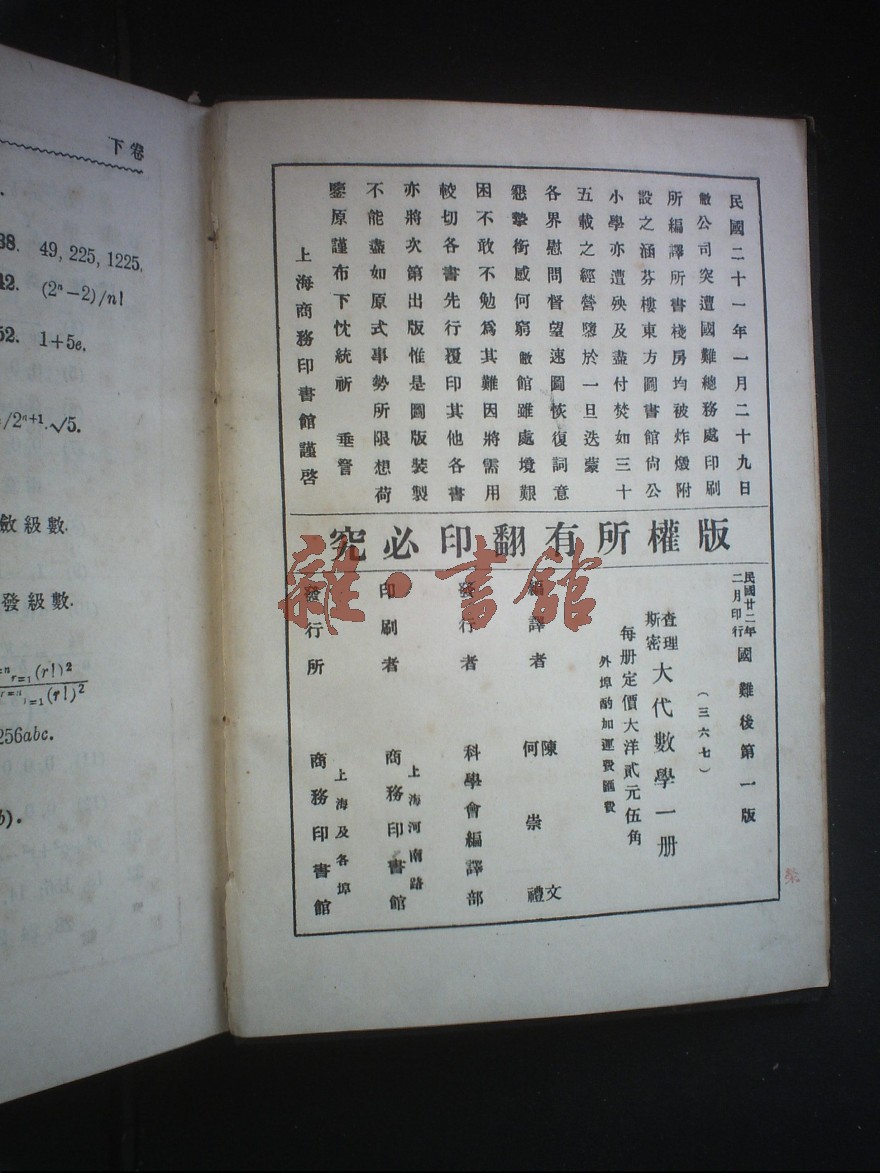 下卷
38. 49, 225, 1225.
42. (2ⁿ−2)/n!
52. 1+5e.
/2ⁿ⁺¹.√5.
斂級數.
發級數.
r=1(r!)²
r=1(r!)²
256abc.
b).
民國二十一年一月二十九日
敝公司突遭國難總務處印刷
所編譯所書棧房均被炸燬附
設之涵芬樓東方圖書館尙公
小學亦遭殃及盡付焚如三十
五載之經營墮於一旦迭蒙
各界慰問督望速圖恢復詞意
懇摯銜感何窮敝館雖處境艱
困不敢不勉爲其難因將需用
較切各書先行覆印其他各書
亦將次第出版惟是圖版裝製
不能盡如原式事勢所限想荷
鑒原謹布下忱統祈 垂詧
上海商務印書館謹啓
版權所有翻印必究
民國廿二年二月印行 國難後第一版
(三六七)
查理斯密 大代數學一册
每册定價大洋貳元伍角
外埠酌加運費匯費
編譯者 陳文 何崇禮
發行者 科學會編譯部
印刷者 上海河南路 商務印書館
發行所 上海及各埠 商務印書館
雜·書館